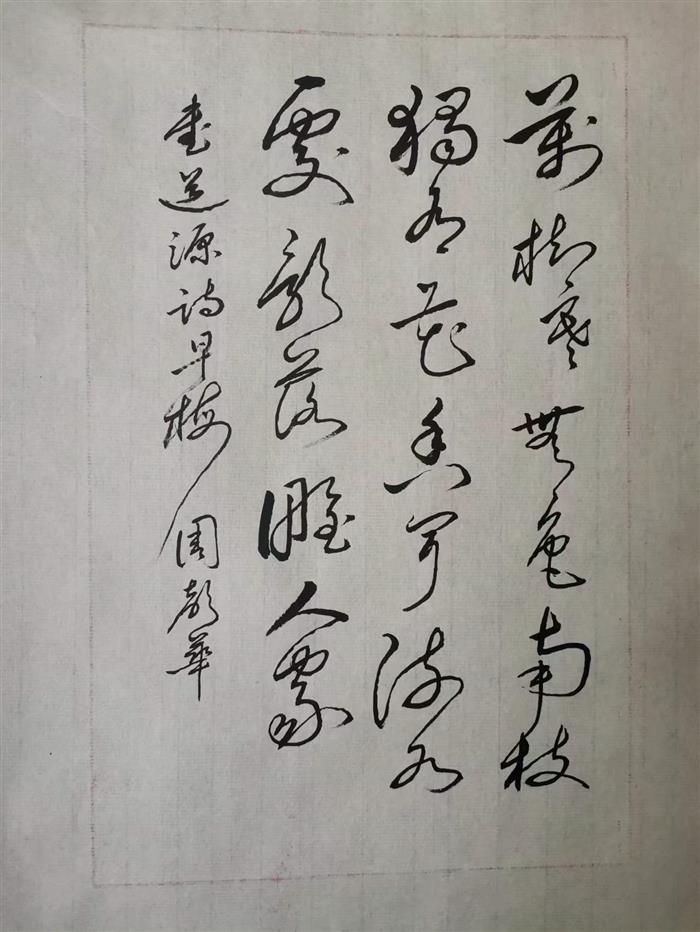 萬樹寒無色南枝
獨有花香聞流水
處影落野人家
書道源詩早梅 周華